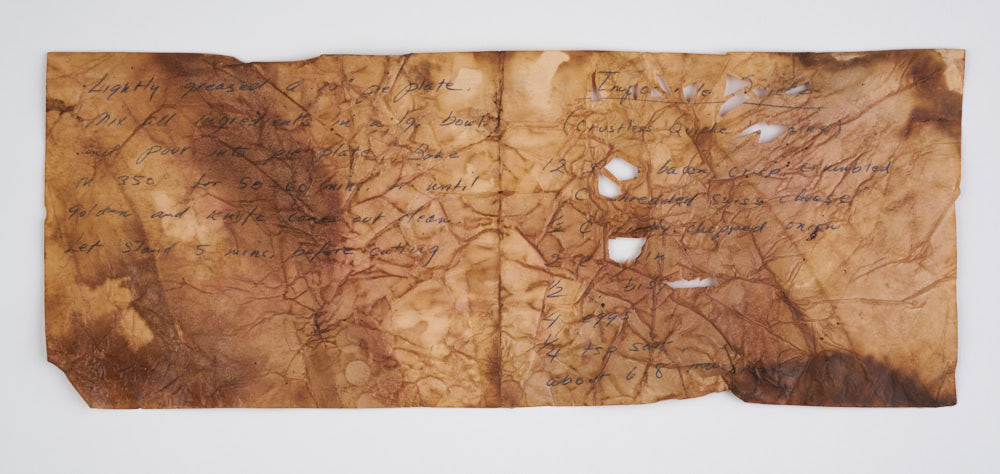 Lightly greased a 10" pie plate.
Mix all ingredients in a lg. bowl
and pour into pie plate. Bake
in 350° for 50-60 min. or until
golden and knife comes out clean.
Let stand 5 mins. before cutting
(Crustless Quiche
12 bacon, crisp crumbled
C shredded Swiss cheese
C chopped onion
2 C
1/2 C bis
4 eggs
1/4 tsp salt
about 6-8